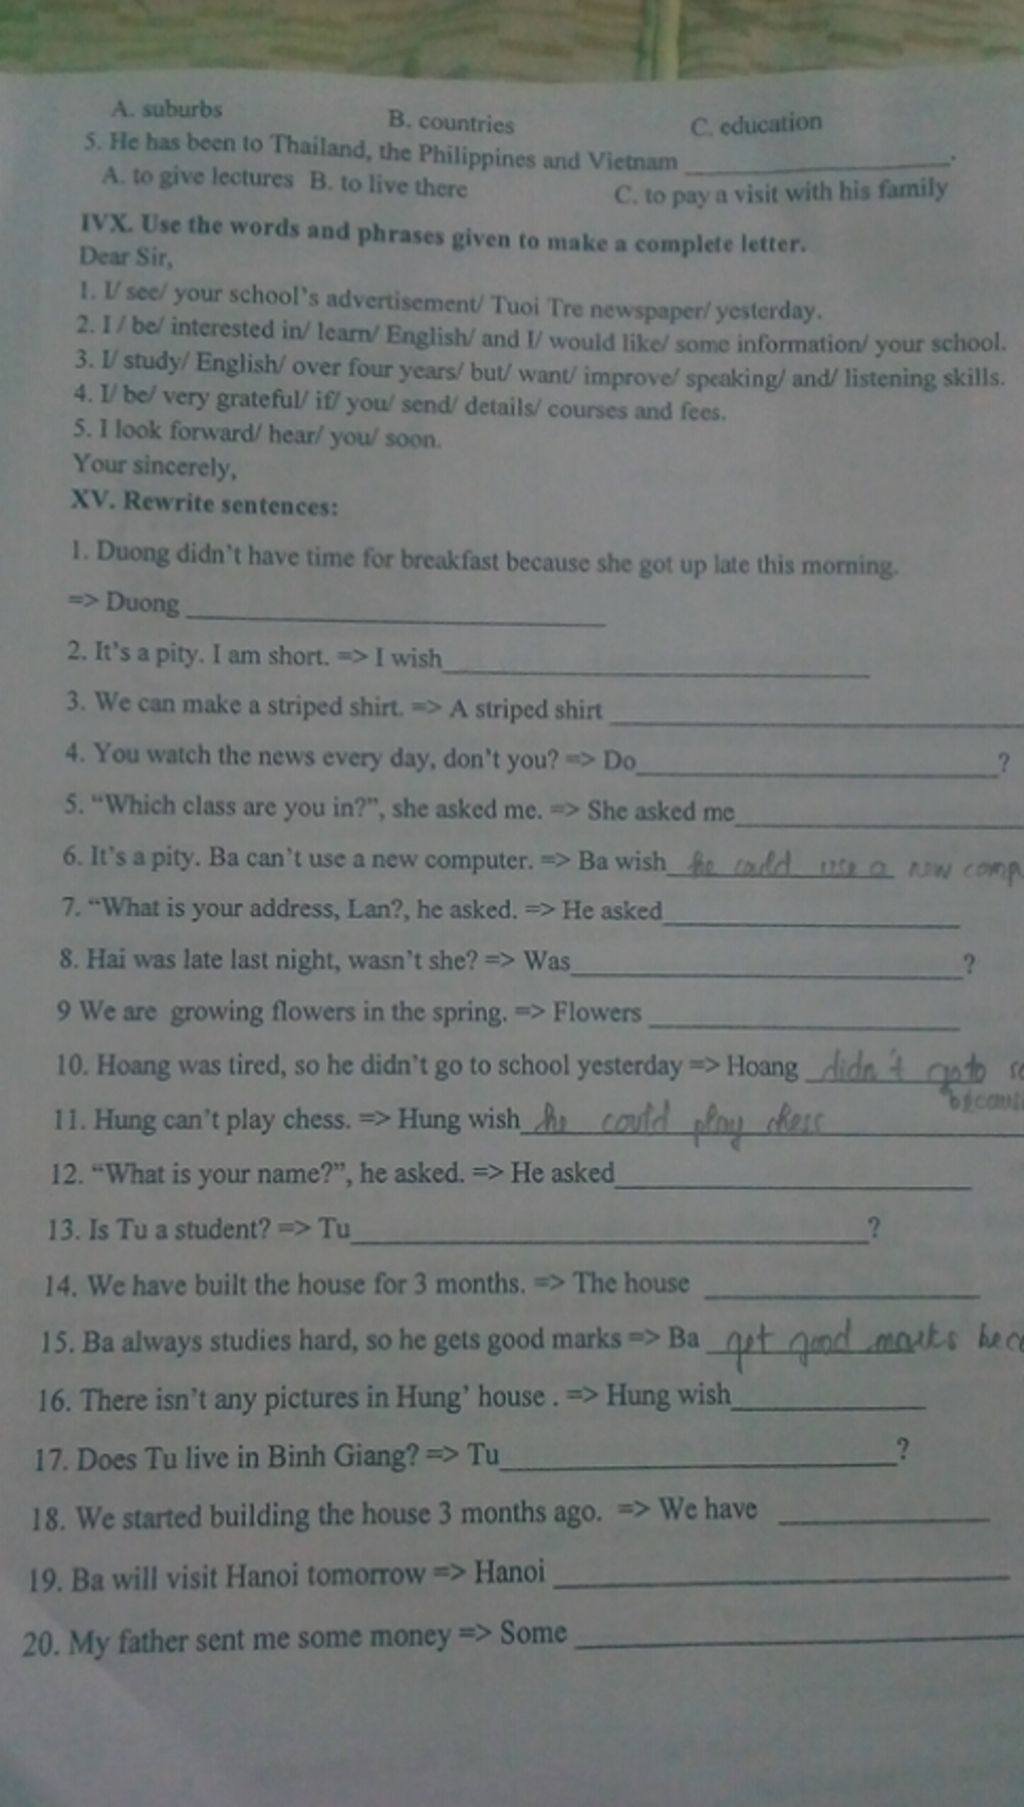 A. suburbs B. countries C. education
5. He has been to Thailand, the Philippines and Vietnam ____________________.
A. to give lectures B. to live there C. to pay a visit with his family
IVX. Use the words and phrases given to make a complete letter.
Dear Sir,
1. I/ see/ your school's advertisement/ Tuoi Tre newspaper/ yesterday.
2. I / be/ interested in/ learn/ English/ and I/ would like/ some information/ your school.
3. I/ study/ English/ over four years/ but/ want/ improve/ speaking/ and/ listening skills.
4. I/ be/ very grateful/ if/ you/ send/ details/ courses and fees.
5. I look forward/ hear/ you/ soon.
Your sincerely,
XV. Rewrite sentences:
1. Duong didn't have time for breakfast because she got up late this morning.
=> Duong ____________________
2. It's a pity. I am short. => I wish____________________
3. We can make a striped shirt. => A striped shirt ____________________
4. You watch the news every day, don't you? => Do____________________?
5. “Which class are you in?”, she asked me. => She asked me____________________
6. It's a pity. Ba can't use a new computer. => Ba wish he could use a new comp
7. “What is your address, Lan?, he asked. => He asked____________________
8. Hai was late last night, wasn't she? => Was____________________?
9 We are growing flowers in the spring. => Flowers ____________________
10. Hoang was tired, so he didn't go to school yesterday => Hoang didn't go to sc
becaus
11. Hung can't play chess. => Hung wish he could play chess
12. “What is your name?”, he asked. => He asked____________________
13. Is Tu a student? => Tu____________________?
14. We have built the house for 3 months. => The house ____________________
15. Ba always studies hard, so he gets good marks => Ba get good marks beca
16. There isn't any pictures in Hung' house . => Hung wish____________________
17. Does Tu live in Binh Giang? => Tu____________________?
18. We started building the house 3 months ago. => We have ____________________
19. Ba will visit Hanoi tomorrow => Hanoi ____________________
20. My father sent me some money => Some ____________________